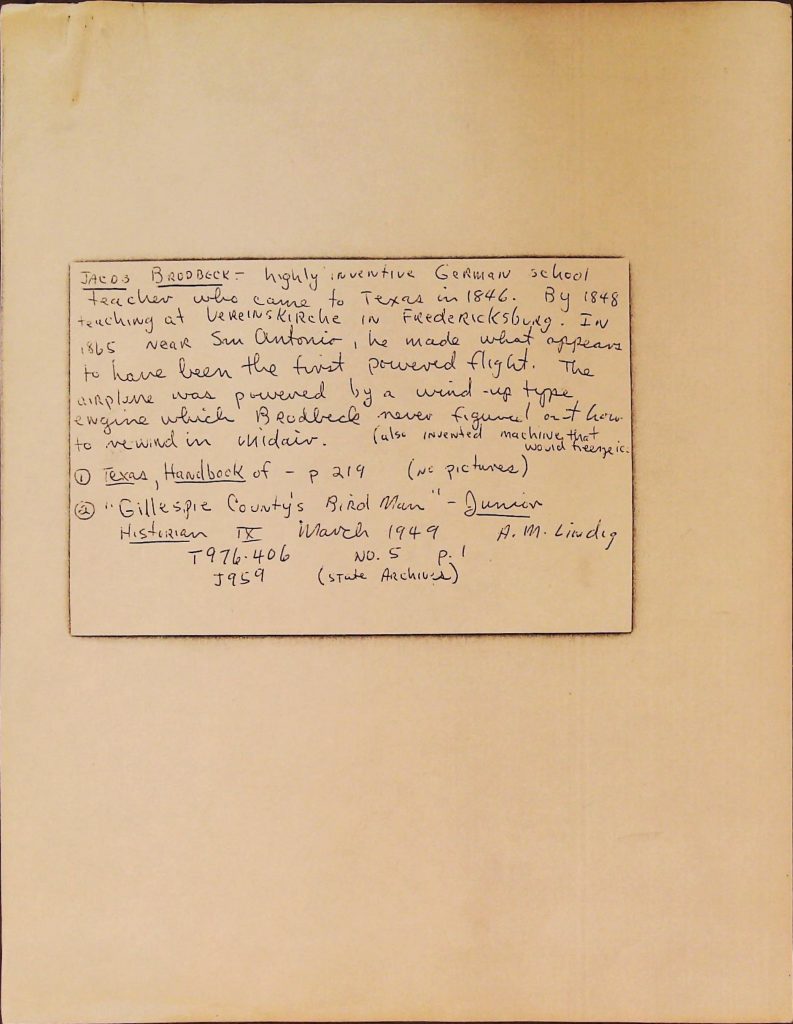 JACOB BRODBECK - highly inventive German school
teacher who came to Texas in 1846. By 1848
teaching at Vereinskirche in Fredericksburg. In
1865 near San Antonio, he made what appears
to have been the first powered flight. The
airplane was powered by a wind-up type
engine which Brodbeck never figured out how
to rewind in midair. (also invented machine that
would freeze ic
① Texas, Handbook of - p 219 (no pictures)
② "Gillespie County's Bird Man" - Junior
Historian IX March 1949 A.M. Lindig
T976.406 NO. 5 p. 1
J959 (State Archives)